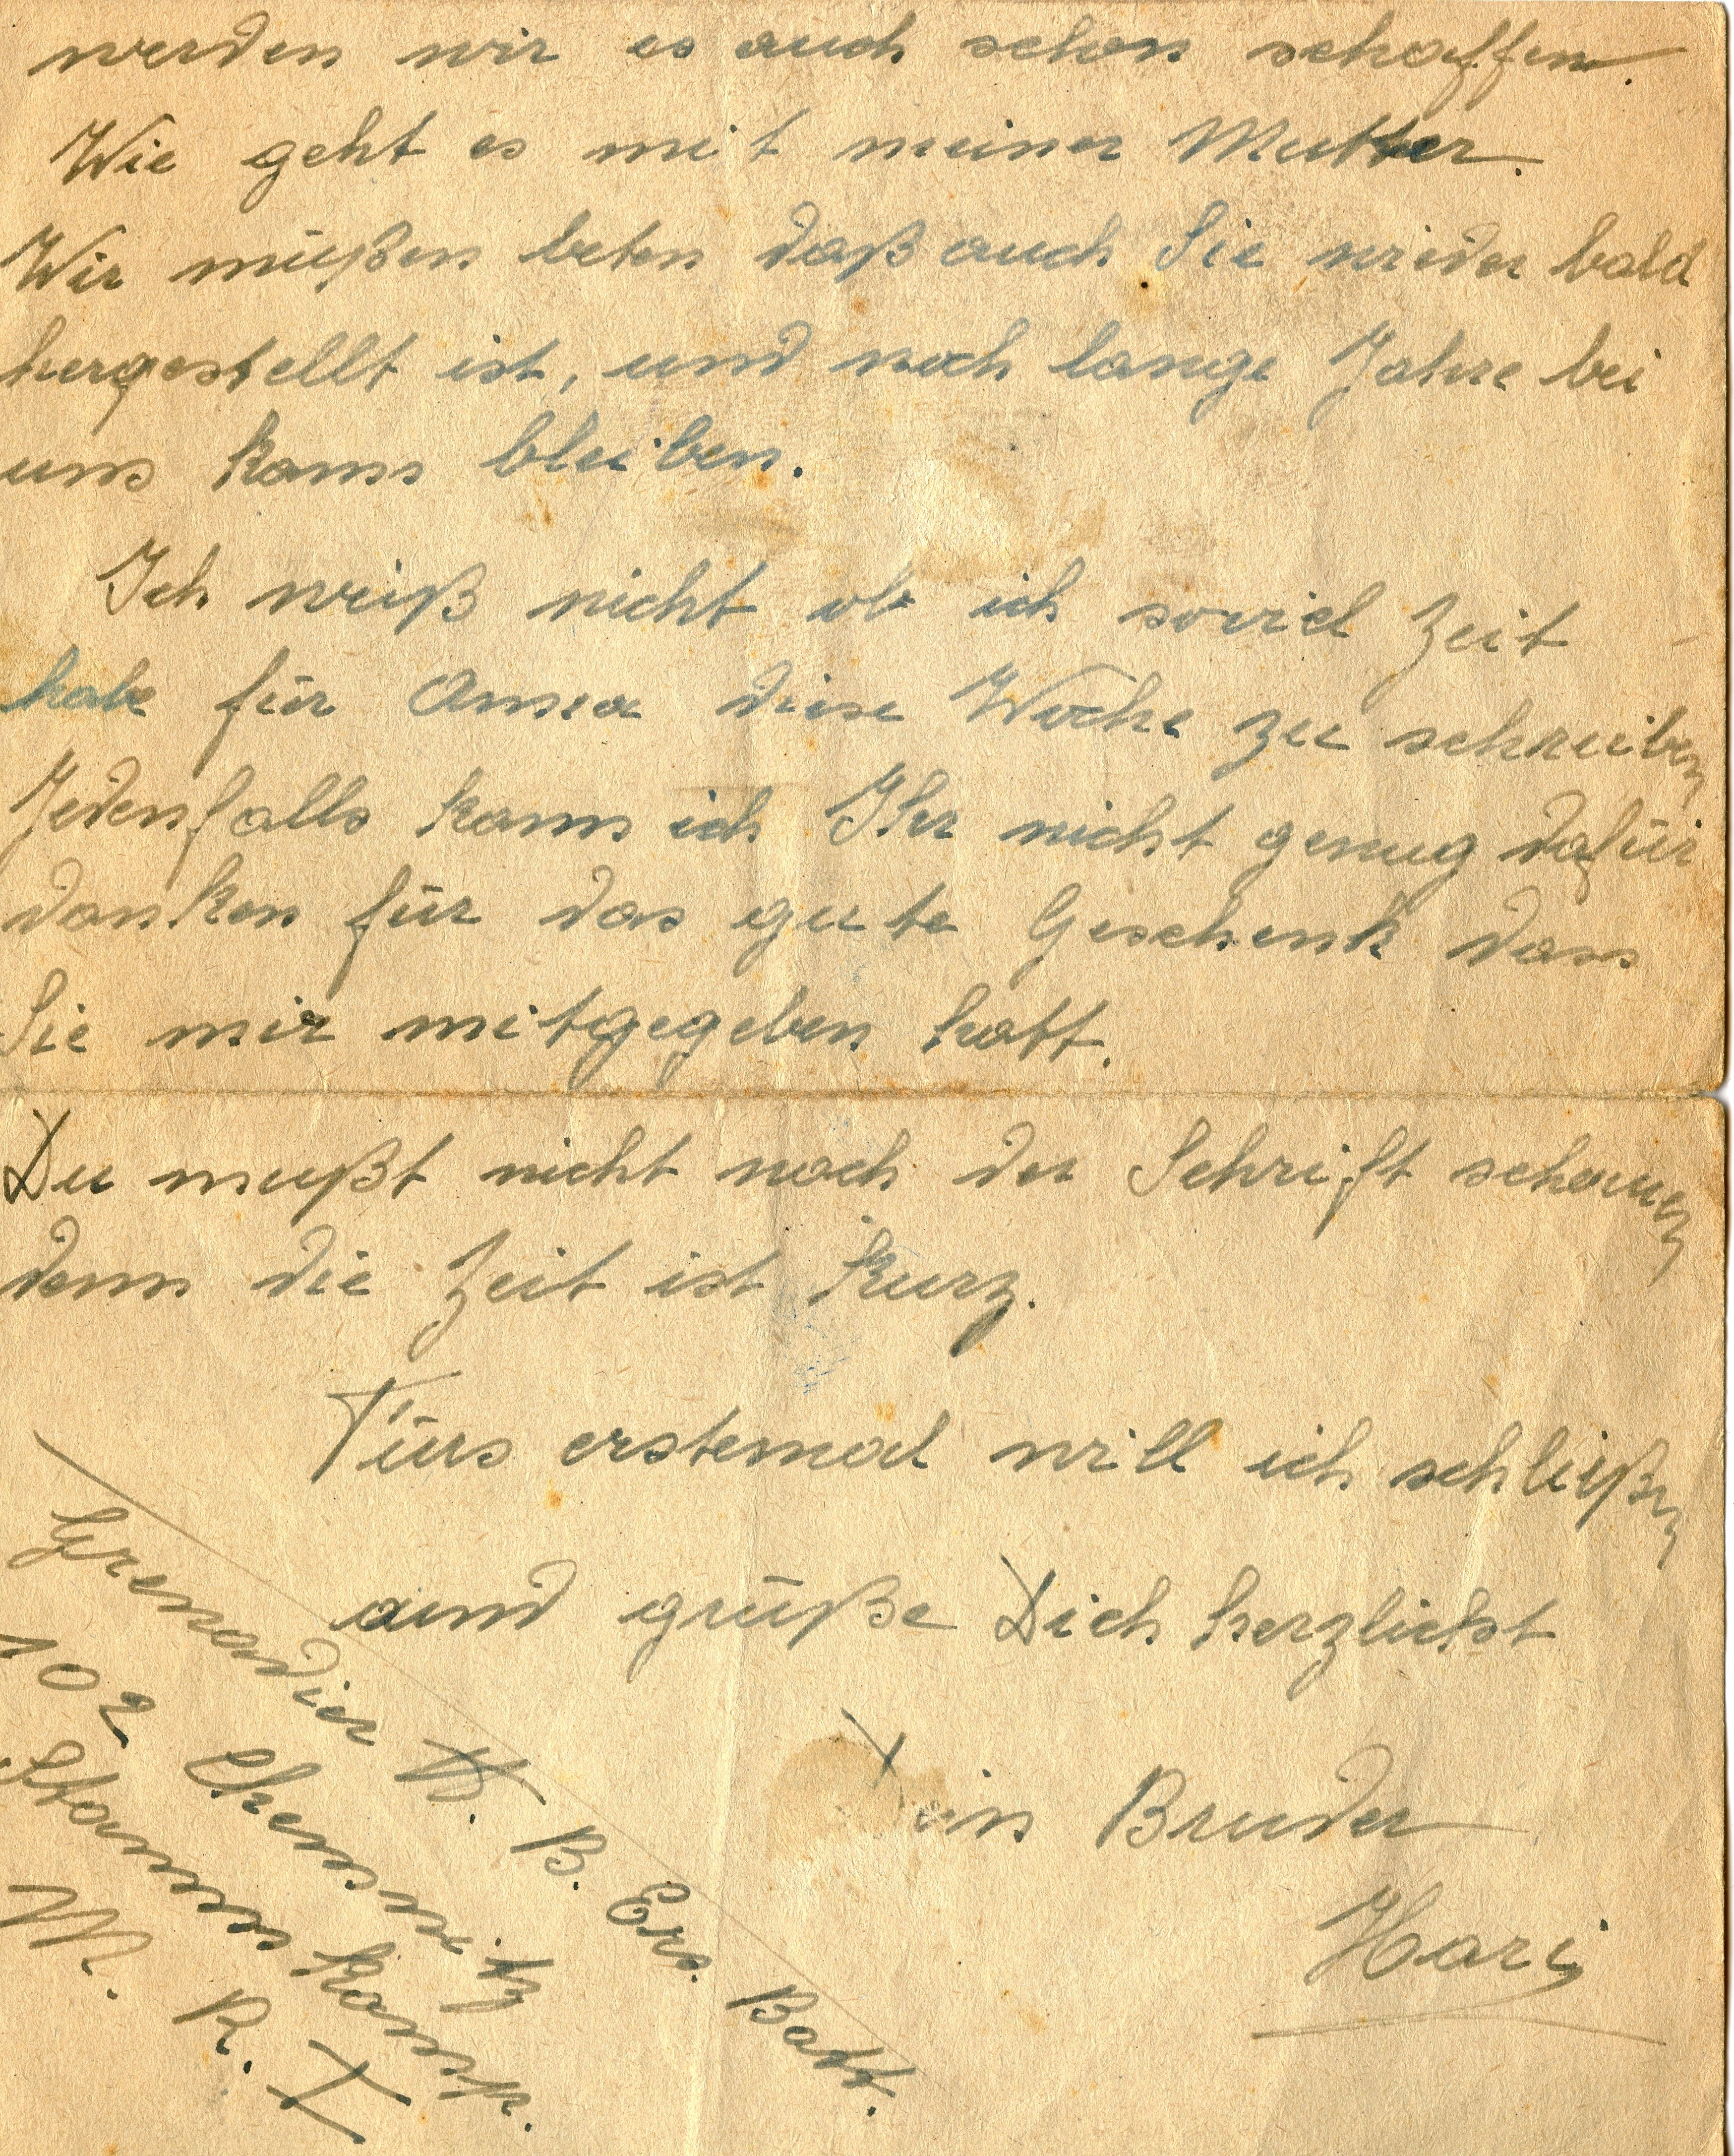 werden wir es auch schon schaffen.
Wie geht es mit meiner Mutter.
Wir müßen beten daß auch Sie wieder bald
hergestellt ist, und noch lange Jahre bei
uns kann bleiben.
Ich weiß nicht ob ich soviel Zeit
habe für Anna diese Woche zu schreiben
Jedenfalls kann ich Ihr nicht genug dafür
danken für das gute Geschenk dass
Sie mir mitgegeben hatt.
Du mußt nicht nach der Schrift schauen
denn die Zeit ist kurz.
Fürs erstemal will ich schließen
und grüße Dich herzlichst
Dein Bruder
Hari
Grenadier B. Ers. Batt.
102 Chemnitz
Stamm Komp.
M. R. I